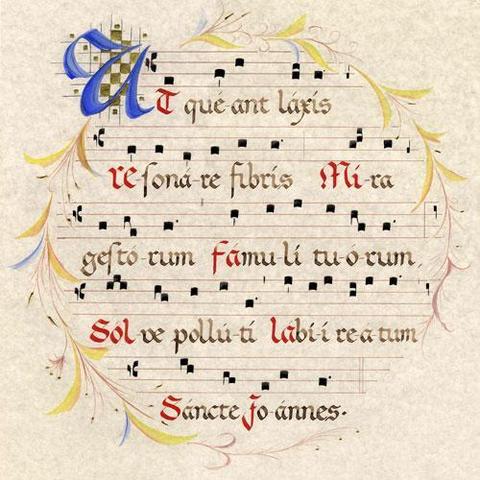 UT qué-ant láxis
re-ſoná-re fibris Mi-ra
geſtó-rum fámu-lí tu-ó-rum,
Sol-ve pollú-ti lábi-i re-a-tum
Sáncte Jo-ánnes.